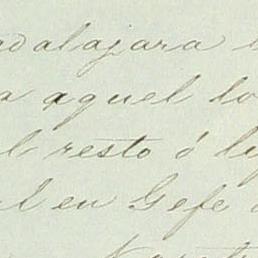 adalajara
a aquel lo
l resto ó
l en Gefe